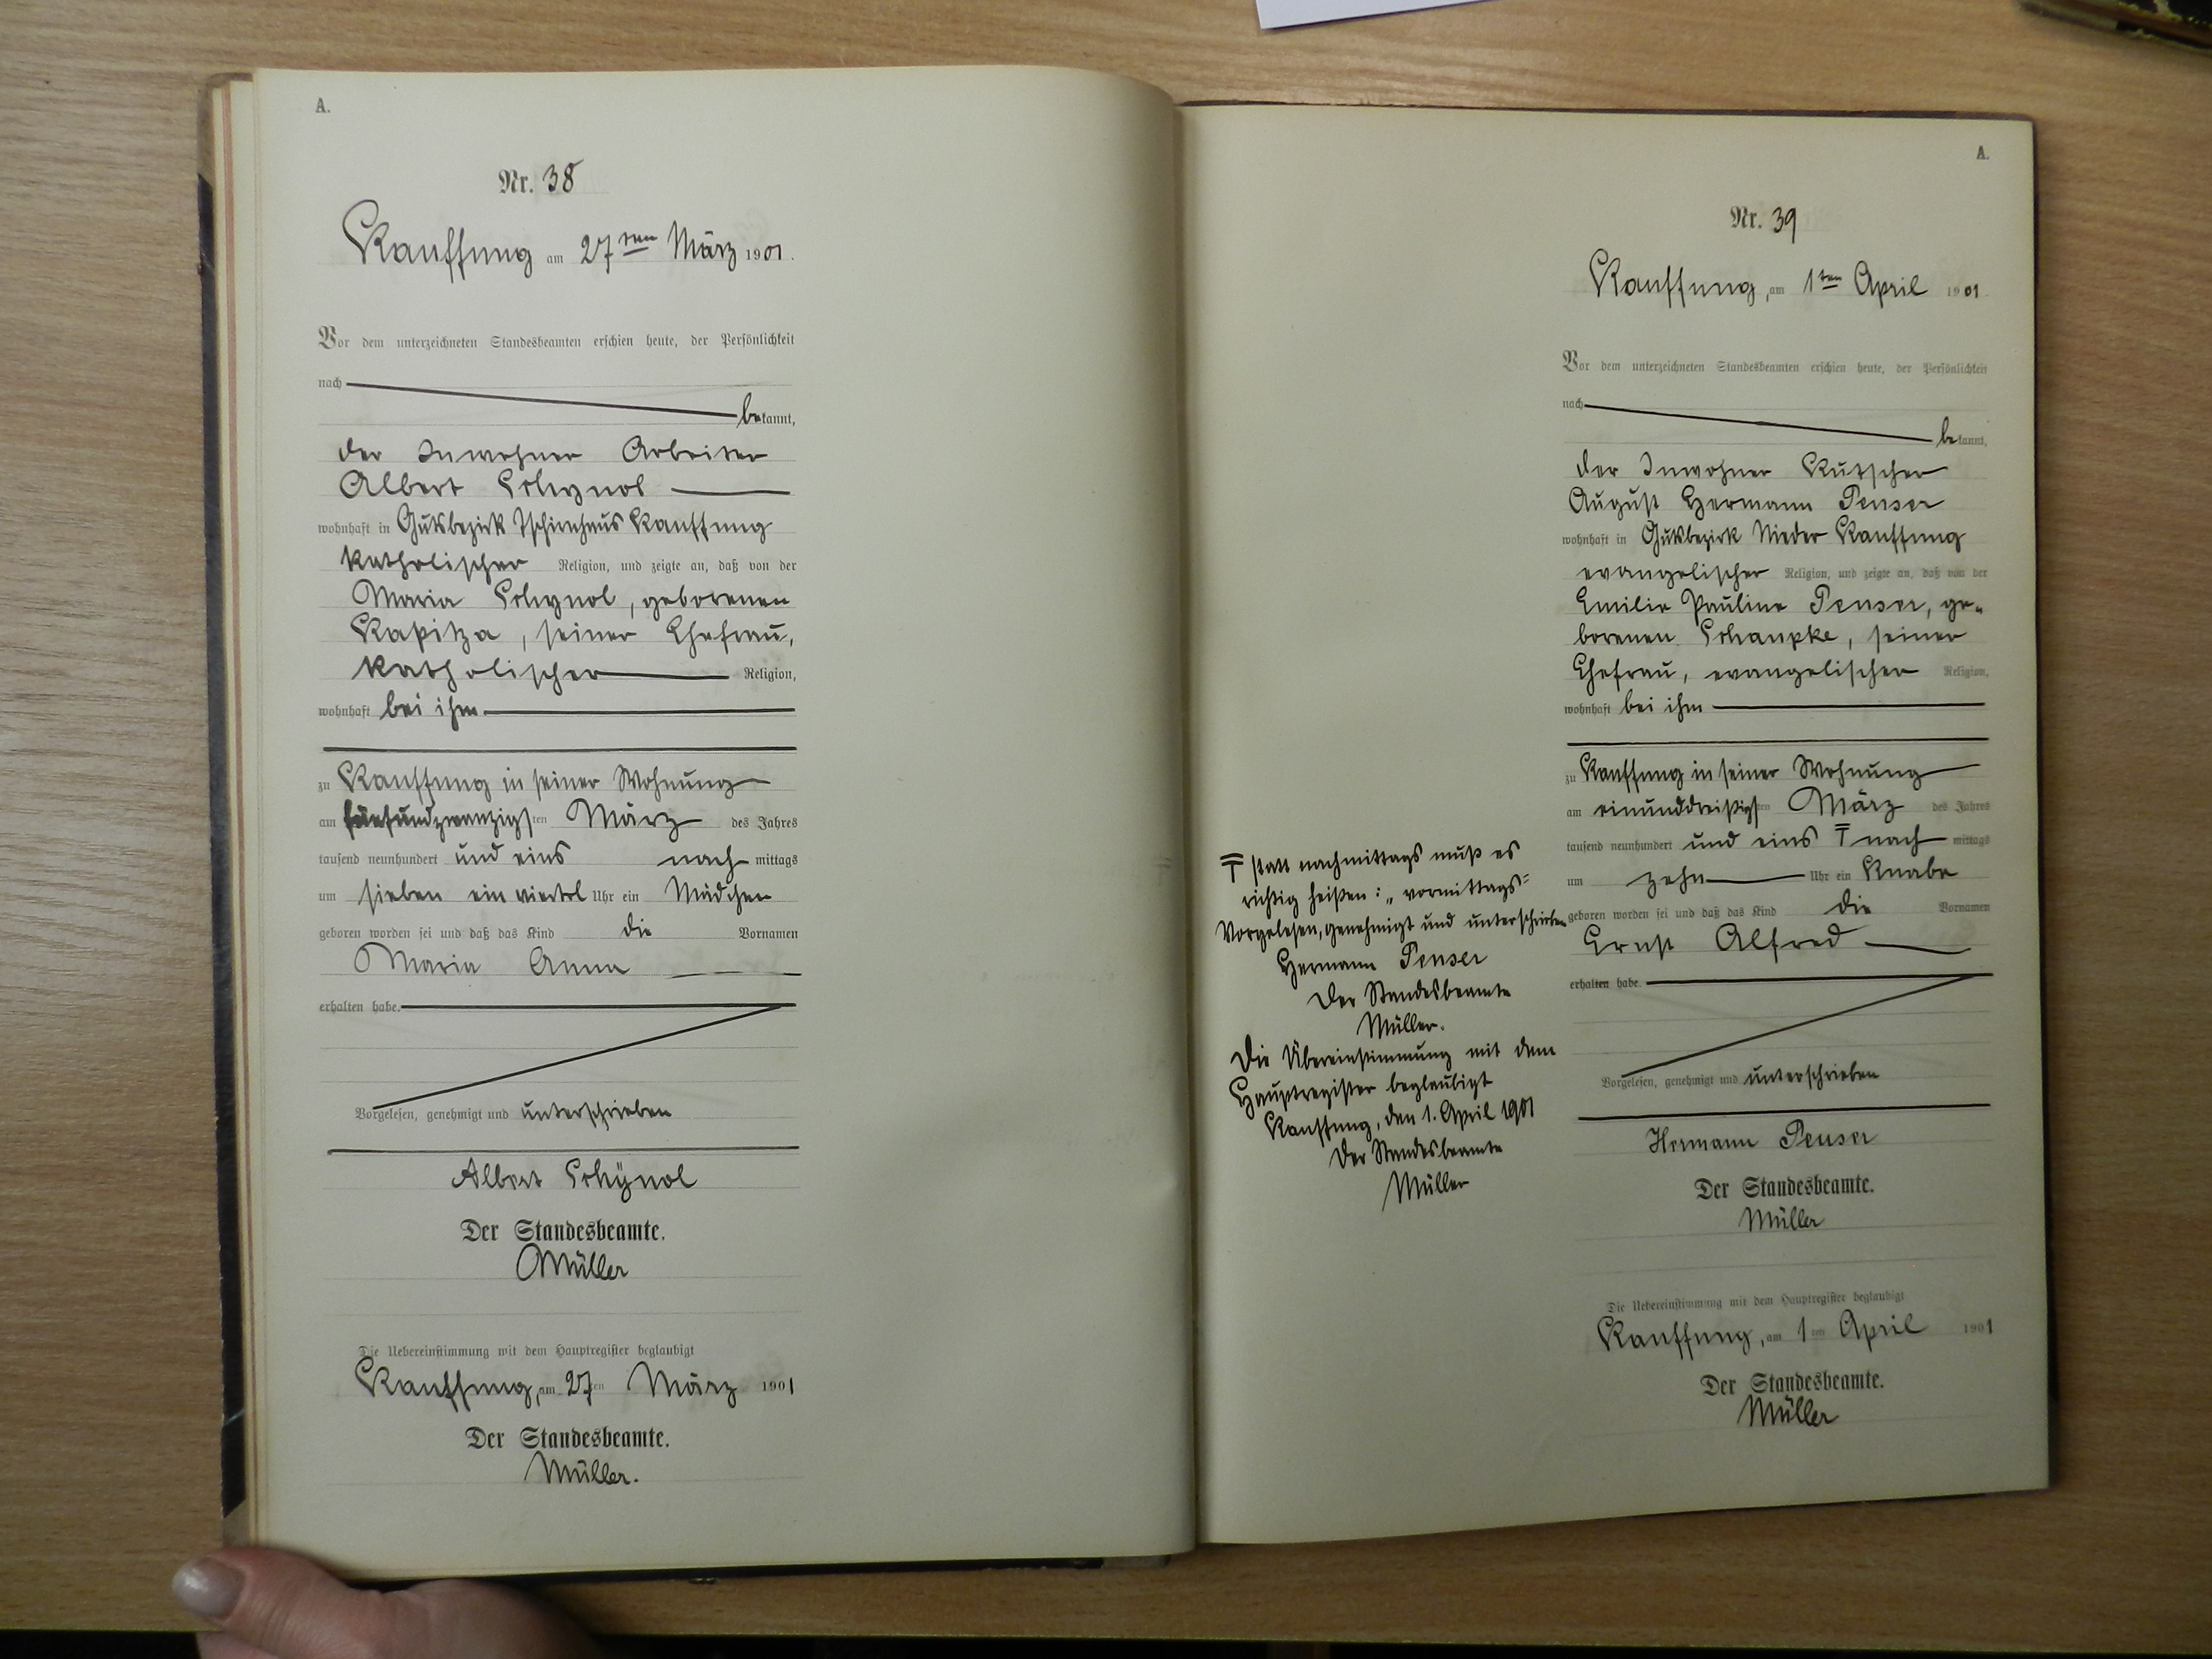 A.
Nr. 38
Kauffung am 27ten März 1901.
Vor dem unterzeichneten Standesbeamten erschien heute, der Persönlichkeit
nach
bekannt,
der Inwohner Arbeiter
Albert Schynol
wohnhaft in Gutsbezirk Tschirnhaus Kauffung
katholischer Religion, und zeigte an, daß von der
Maria Schynol, geborenen
Kapitza, seiner Ehefrau,
katholischer Religion,
wohnhaft bei ihm
zu Kauffung in seiner Wohnung
am fünfundzwanzigsten März des Jahres
tausend neunhundert und eins nachmittags
um sieben ein viertel Uhr ein Mädchen
geboren worden sei und daß das Kind die Vornamen
Maria Anna
erhalten habe.
Vorgelesen, genehmigt und unterschrieben
Albert Schÿnol
Der Standesbeamte.
Müller
Die Uebereinstimmung mit dem Hauptregister beglaubigt
Kauffung, am 27ten März 1901
Der Standesbeamte.
Müller.
A.
Nr. 39
Kauffung, am 1ten April 1901
Vor dem unterzeichneten Standesbeamten erschien heute, der Persönlichkeit
nach
bekannt,
der Inwohner Kutscher
August Hermann Penser
wohnhaft in Gutsbezirk Nieder Kauffung
evangelischer Religion, und zeigte an, daß von der
Emilie Pauline Penser, ge-
borenen Schaupke, seiner
Ehefrau, evangelischer Religion,
wohnhaft bei ihm
zu Kauffung in seiner Wohnung
am einunddreißigsten März des Jahres
tausend neunhundert und eins ╤ nachmittags
um zehn Uhr ein Knabe
geboren worden sei und daß das Kind die Vornamen
Ernst Alfred
erhalten habe.
Vorgelesen, genehmigt und unterschrieben
Hermann Penser
Der Standesbeamte.
Müller
Die Uebereinstimmung mit dem Hauptregister beglaubigt
Kauffung, am 1ten April 1901
Der Standesbeamte.
Müller
╤ statt nachmittags muß es
richtig heißen: „vormittags"
Vorgelesen, genehmigt und unterschrieben
Hermann Penser
Der Standesbeamte
Müller.
Die Übereinstimmung mit dem
Hauptregister beglaubigt
Kauffung, den 1. April 1901
Der Standesbeamte
Müller